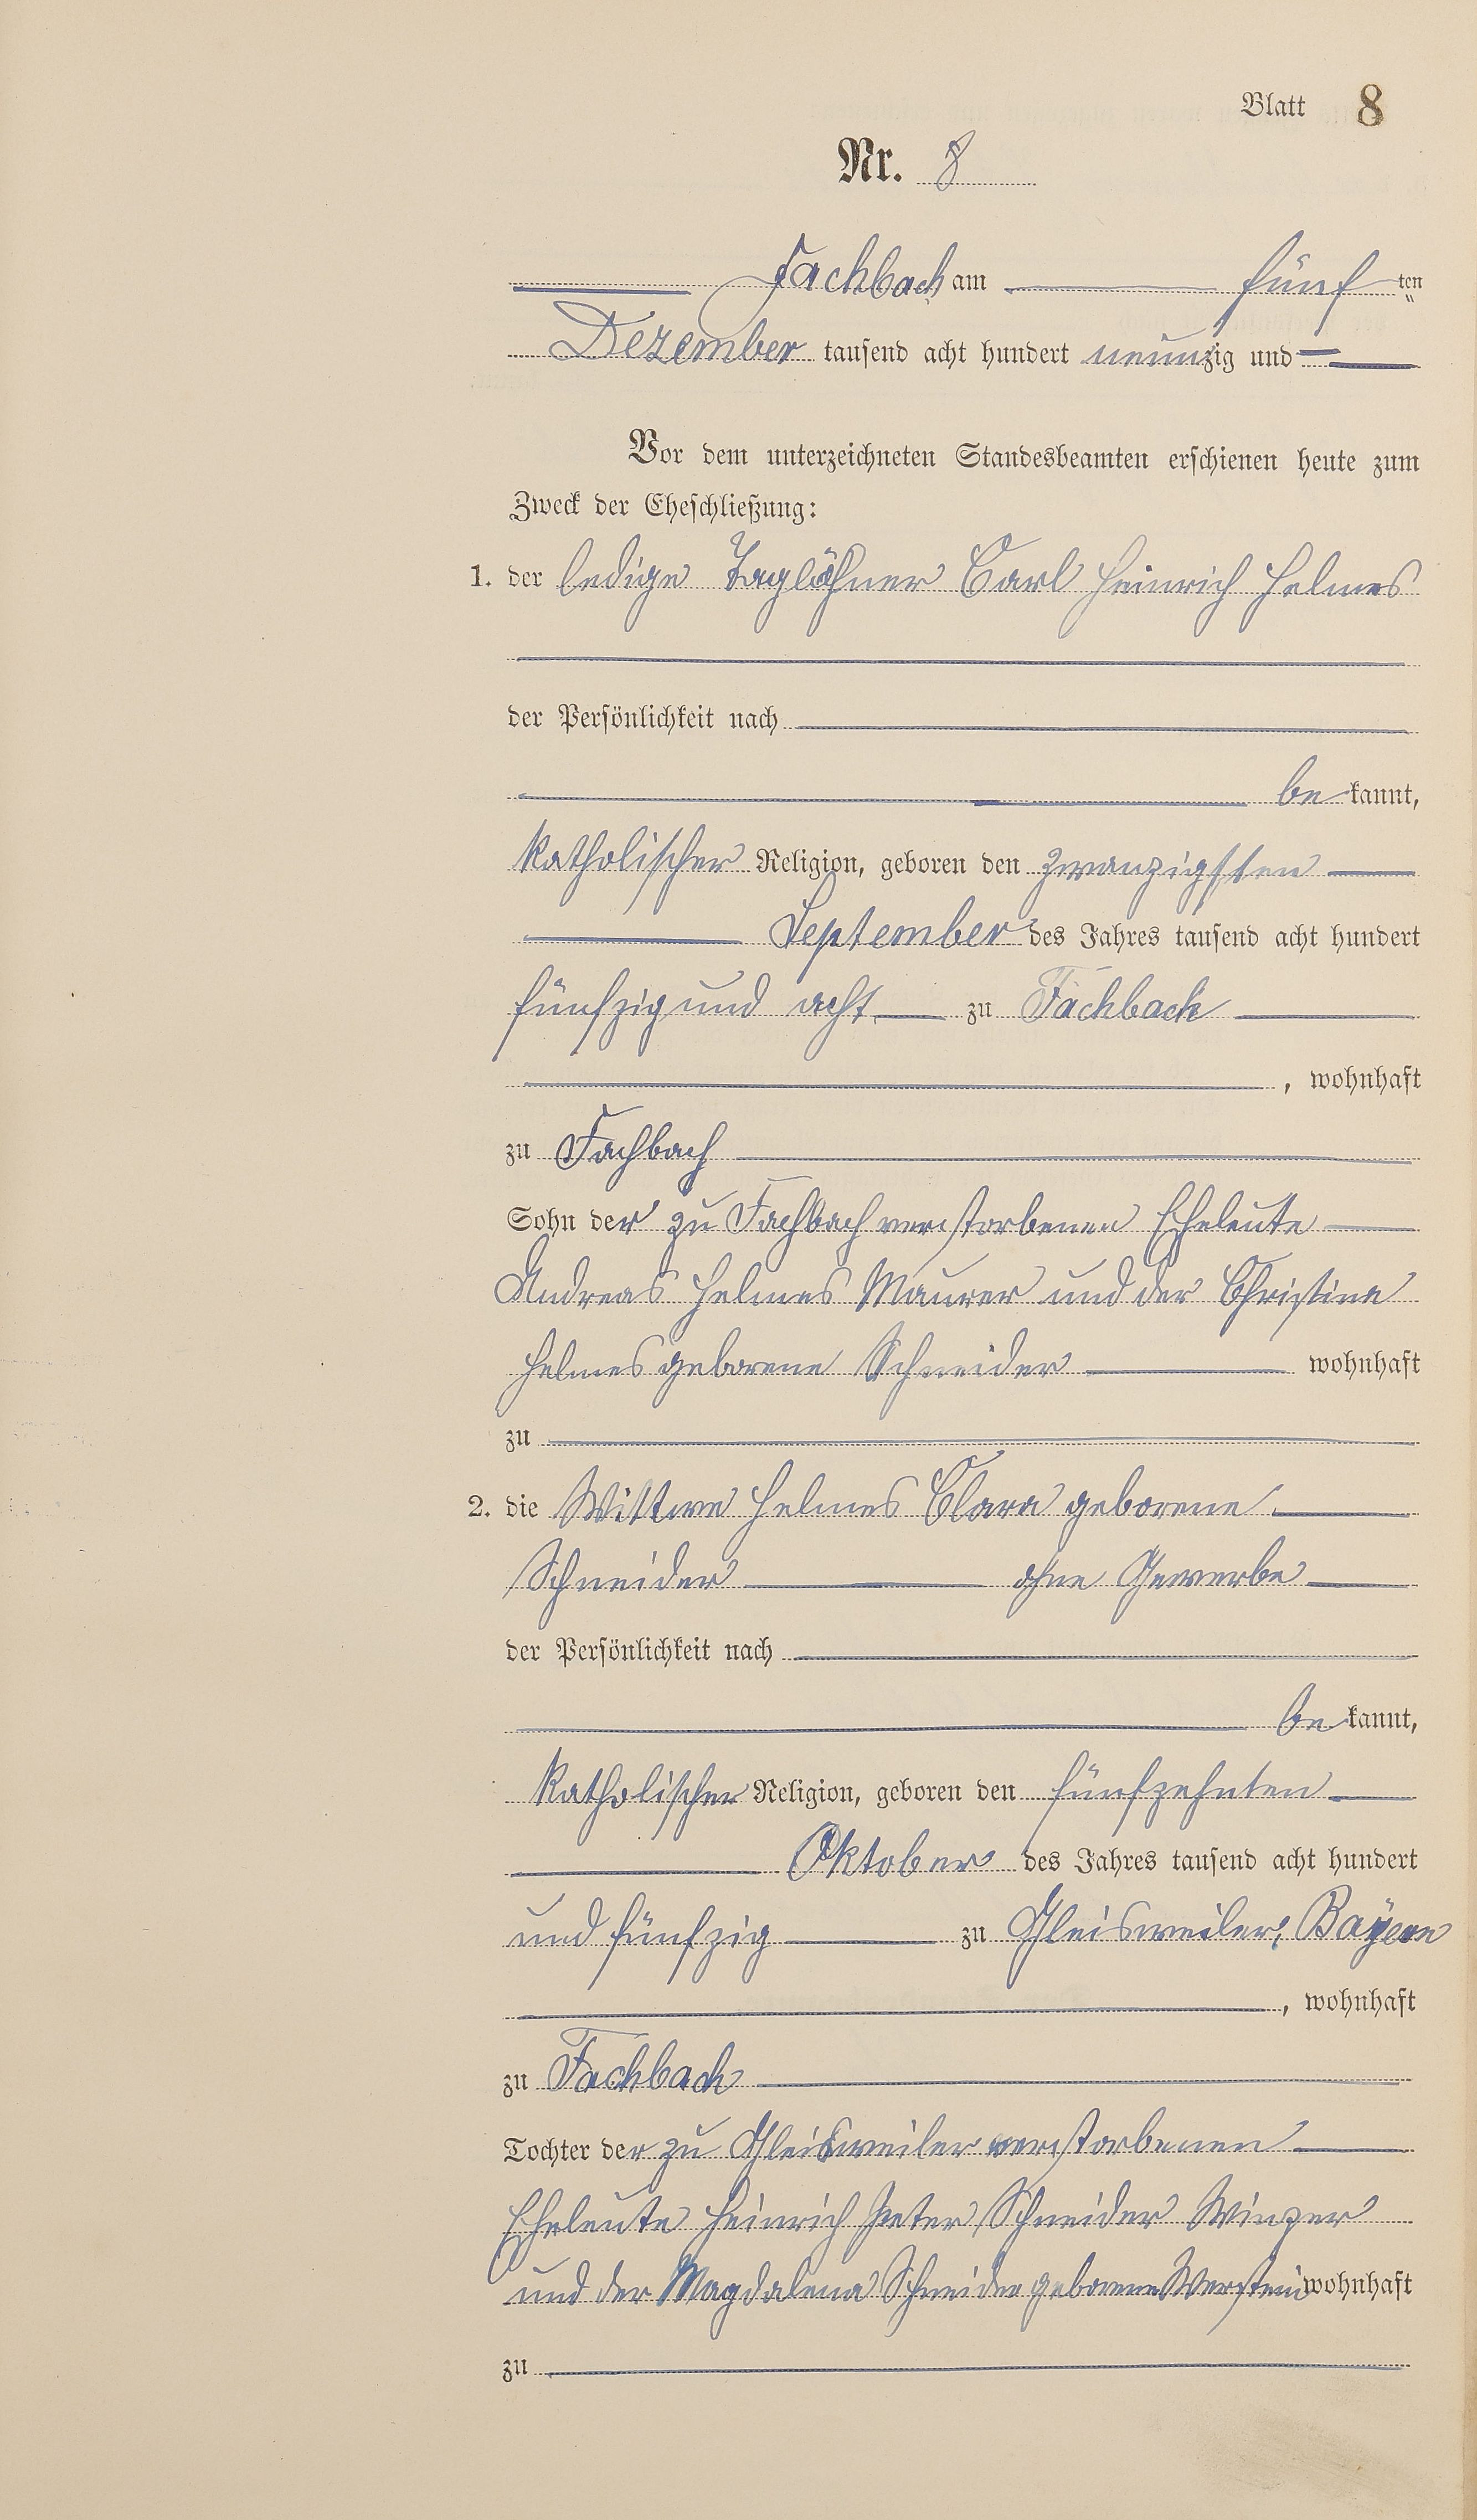 Blatt 8
Nr. 8
Fachbach am fünf ten
Dezember tausend acht hundert neunzig und
Vor dem unterzeichneten Standesbeamten erschienen heute zum
Zweck der Eheschließung:
1. der ledige Taglöhner Carl Heinrich Helmes
der Persönlichkeit nach
be kannt,
katholischer Religion, geboren den zwanzigsten
September des Jahres tausend acht hundert
fünfzig und acht zu Fachbach
, wohnhaft
zu Fachbach
Sohn der zu Fachbach verstorbenen Eheleute
Andreas Helmes Maurer und der Christine
Helmes geborene Schneider wohnhaft
zu
2. die Wittwe Helmes Clara geborene
Schneider ohne Gewerbe
der Persönlichkeit nach
be kannt,
katholischer Religion, geboren den fünfzehnten
Oktober des Jahres tausend acht hundert
und fünfzig zu Gleisweiler, Bayern
, wohnhaft
zu Fachbach
Tochter der zu Gleisweiler verstorbenen
Eheleute Heinrich Peter Schneider Winzer
und der Magdalena Schneider geborene wohnhaft
zu